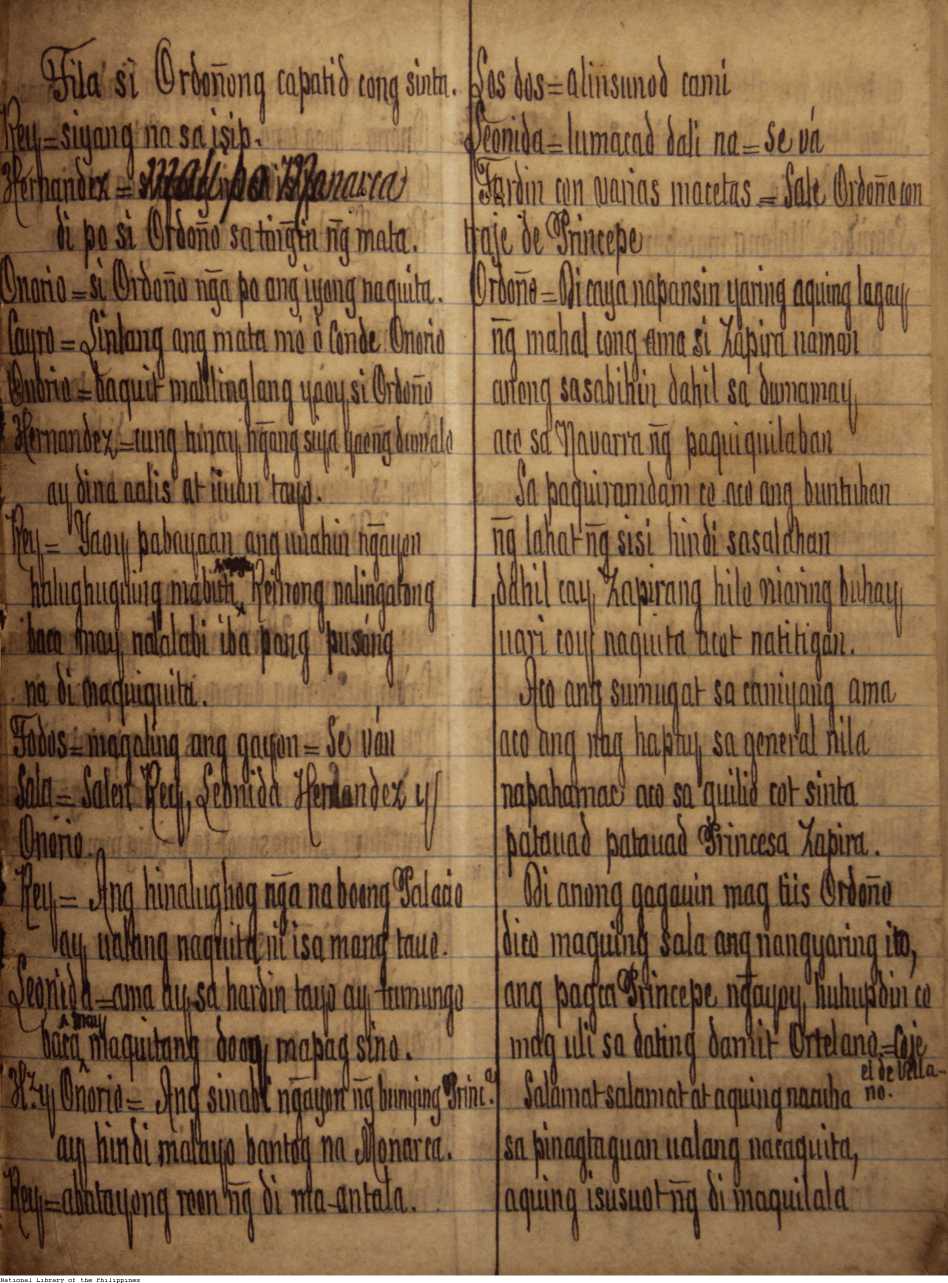 Tila si Ordoñong capatid cong sinta.
Rey = siyang na sa isip.
Hernandez = mali po Monarca
di po si Ordoño sa toiñgin ñg mata.
Onorio = si Ordoño ñga po ang iyong naquita.
Layro = Lintang ang mata mo ó Conde Onorio
Onorio = baquit malilinglang yaoy si Ordoño
Hernandez = cung tunay ñgang siya yaong dumalo
ay dina aalis at iiuan tayo.
Rey = Yaoy pabayaan ang unahin ñgayon
halughuguing mabuti Reinong nalingatong
baca may nalalabi iba pang pusóng
na di maquiquita.
Todos = magaling ang gayon = Se ván
Sala = Salen Rey, Leonida Hernandez y
Onório.
Rey = Ang hinalughog ñga na boong Palacio
ay ualang naquita ni isa mang tauo.
Leonida = ama ay sa hardin tayo ay tumungo
baca may maquitang doon mapag sino.
H. y Onorio = Ang sinabi ñgayon ñg bunying Princ.ª
ay hindi malayo bantog na Monarca.
Rey = abatayong roon ñg di ma-antala.
Los dos = alinsunod cami
Leonida = lumacad dali na = Se vá
Jardin con varias macetas = Sale Ordoño con
traje de Princepe
Ordoño = Di caya napansin yaring aquing lagay
ñg mahal cong ama si Zapira naman
anong sasabihin dahil sa dumamay
aco sa Navarra ñg paquiquilaban
Sa paquiramdam co aco ang buntuhan
ñg lahat ñg sisi hindi sasalahan
dahil cay Zapirang hilo niaring buhay
uari coy naquita acot natitigan.
Aco ang sumugat sa caniyang ama
aco ang nag hapay sa general nila
napahamac aco sa quilid cot sinta
patauad patauad Princesa Zapira.
Di anong gagauin mag tiis Ordoño
dico maguing sala ang nangyaring ito,
ang pagca Princepe ñgayoy huhupdin co
mag uli sa dating damit Ortelano = Coje
el de Villa-
no.
Salamat salamat at aquing nacuha
sa pinagtaguan ualang nacaquita,
aquing isusuot ñg di maquilala
National Library of the Philippines